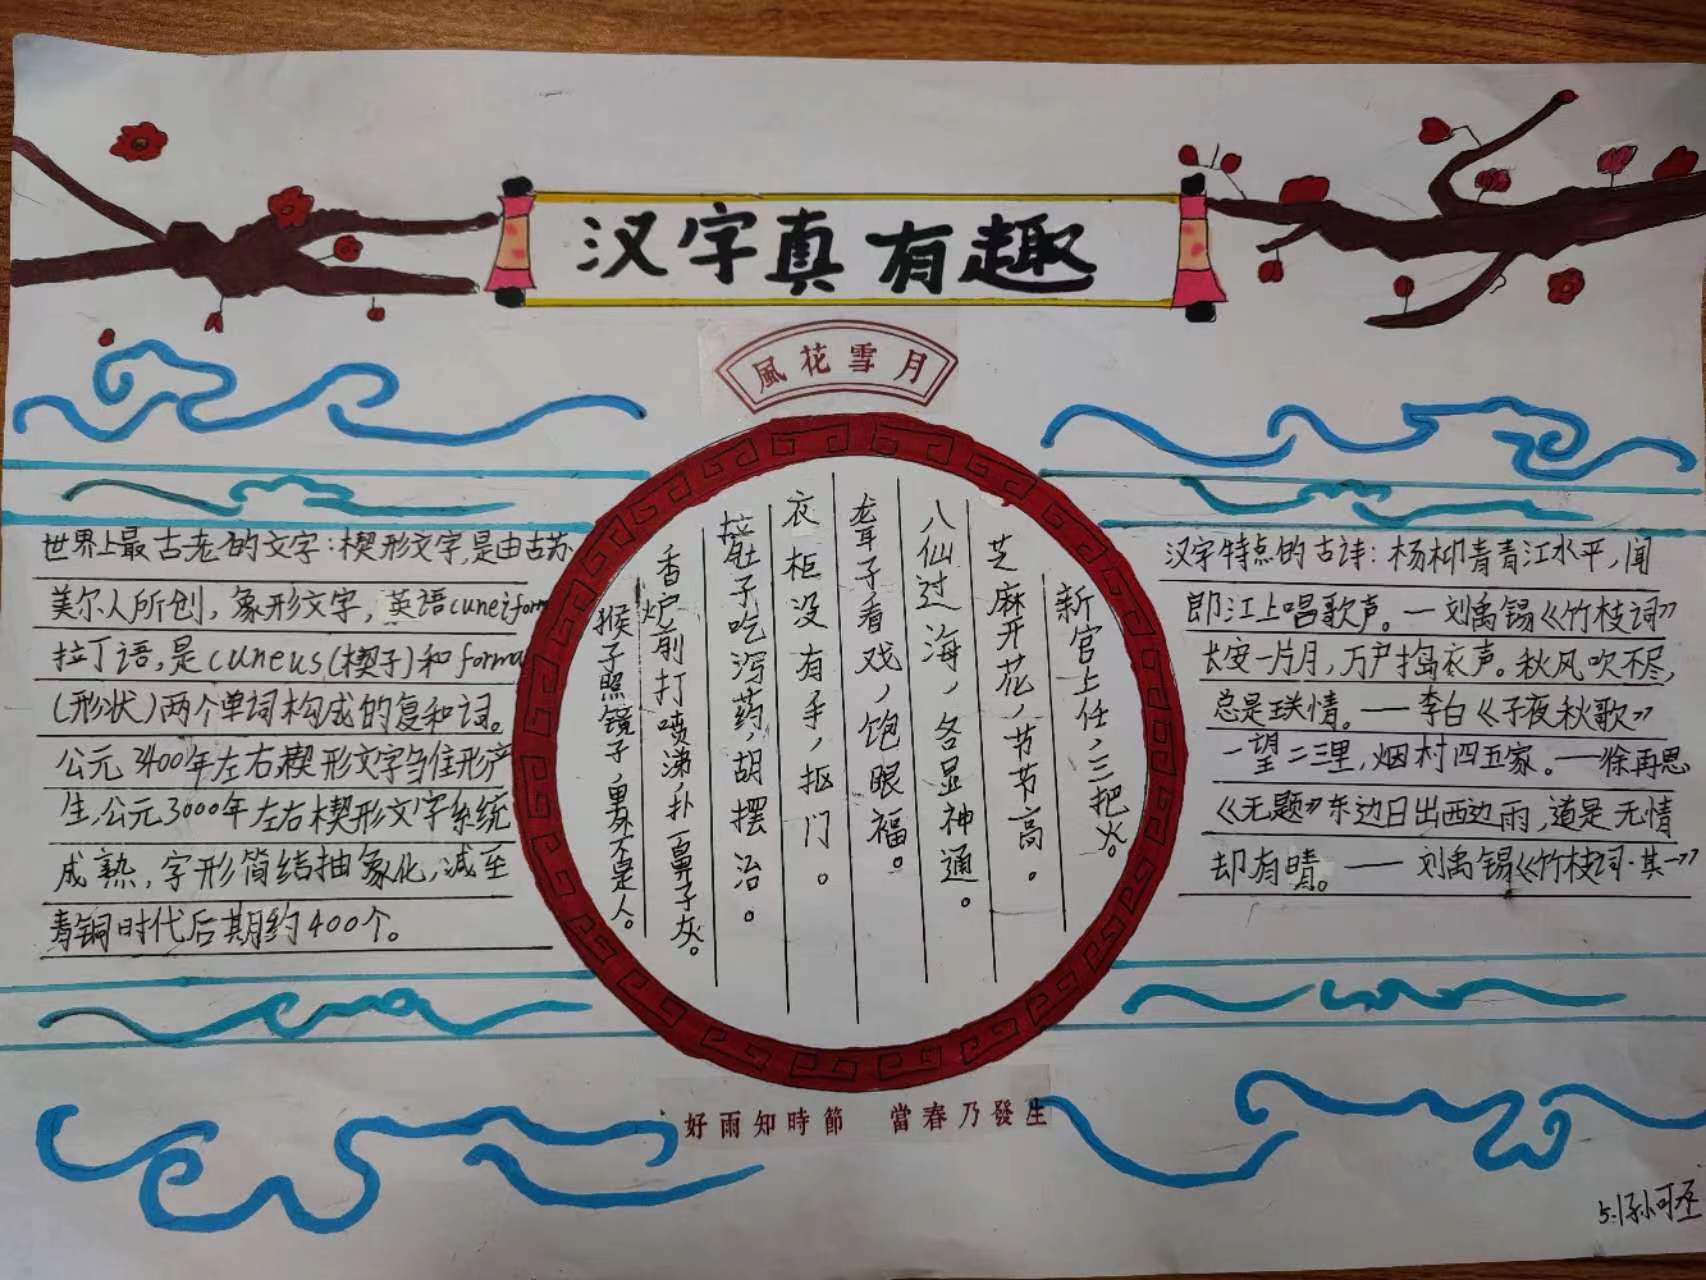 汉字真有趣
風花雪月
世界上最古老的文字:楔形文字,是由古苏
美尔人所创,象形文字,英语cuneiform
拉丁语,是cuneus(楔子)和forma
(形状)两个单词构成的复和词。
公元3400年左右,楔形文字刍住形产
生,公元3000年左右楔形文字系统
成熟,字形简结抽象化,减至
青铜时代后期约400个。
新官上任,三把火。
芝麻开花,节节高。
八仙过海,各显神通。
聋子看戏,饱眼福。
衣柜没有手,抠门。
拉肚子吃泻药,胡摆治。
香炉前打喷涕,扑一鼻子灰。
猴子照镜子,里外不是人。
汉字特点的古诗:杨柳青青江水平,闻
郎江上唱歌声。一刘禹锡《竹枝词》
长安一片月,万户捣衣声。秋风吹不尽,
总是玉关情。——李白《子夜秋歌》
一望二三里,烟村四五家。——徐再思
《无题》东边日出西边雨,道是无情
却有晴。——刘禹锡《竹枝词·其一》
好雨知時節 當春乃發生
5.1孙可丞